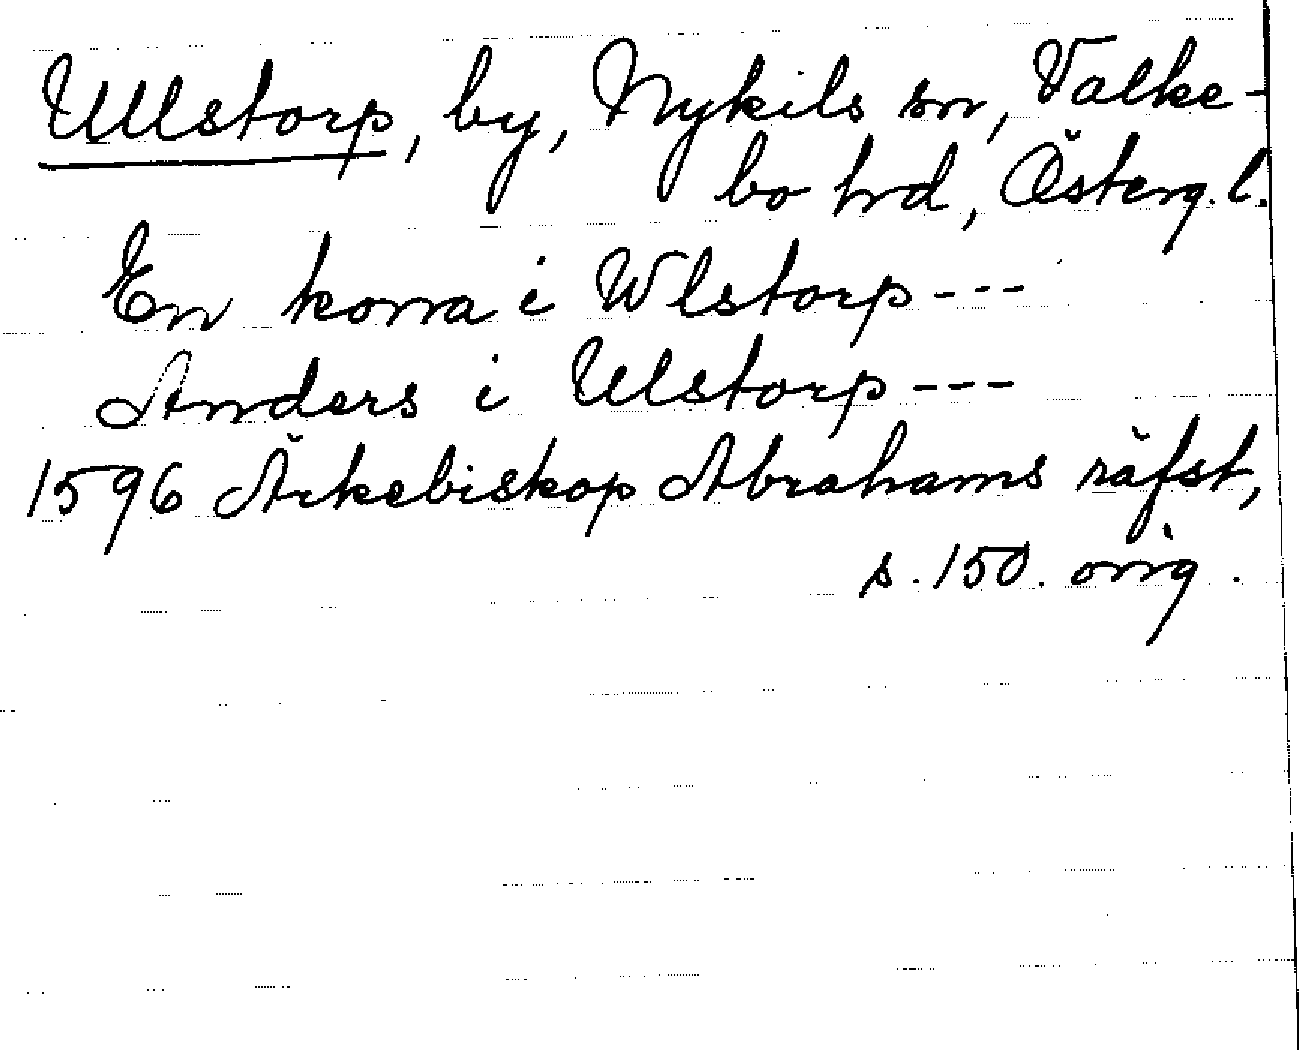 Ullstorp, by, Nykils sn, Valke-
bo hrd, Österg. l.
En kona i Wlstorp ---
Anders i Ulstorp ---
1596 Ärkebiskop Abrahams räfst,
s. 150. orig.